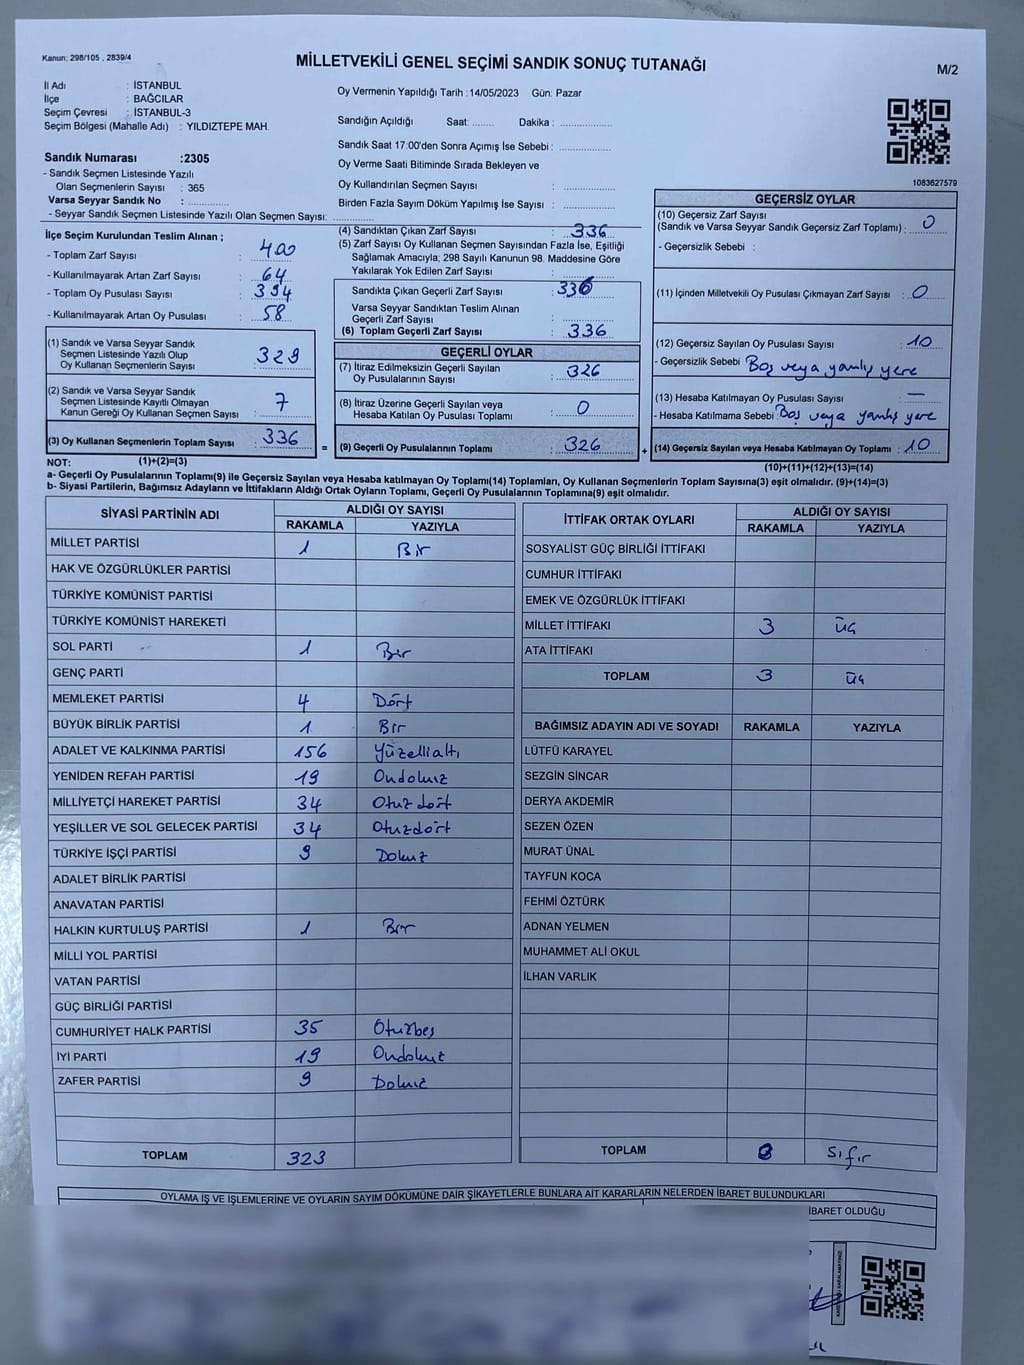 Kanun: 298/105 , 2839/4
MİLLETVEKİLİ GENEL SEÇİMİ SANDIK SONUÇ TUTANAĞI
M/2
İl Adı : İSTANBUL
İlçe : BAĞCILAR
Seçim Çevresi : İSTANBUL-3
Seçim Bölgesi (Mahalle Adı) : YILDIZTEPE MAH.
Sandık Numarası :2305
- Sandık Seçmen Listesinde Yazılı
Olan Seçmenlerin Sayısı : 365
Varsa Seyyar Sandık No : ..............
- Seyyar Sandık Seçmen Listesinde Yazılı Olan Seçmen Sayısı: ..............
Oy Vermenin Yapıldığı Tarih :14/05/2023 Gün: Pazar
Sandığın Açıldığı Saat: ........ Dakika : ..................
Sandık Saat 17:00'den Sonra Açımış İse Sebebi : ..................
Oy Verme Saati Bitiminde Sırada Bekleyen ve
Oy Kullandırılan Seçmen Sayısı : ..................
Birden Fazla Sayım Döküm Yapılmış İse Sayısı : ..................
1083627579
İlçe Seçim Kurulundan Teslim Alınan ;
- Toplam Zarf Sayısı : 400
- Kullanılmayarak Artan Zarf Sayısı : 64
- Toplam Oy Pusulası Sayısı : 394
- Kullanılmayarak Artan Oy Pusulası : 58
(1) Sandık ve Varsa Seyyar Sandık
Seçmen Listesinde Yazılı Olup
Oy Kullanan Seçmenlerin Sayısı : 329
(2) Sandık ve Varsa Seyyar Sandık
Seçmen Listesinde Kayıtlı Olmayan
Kanun Gereği Oy Kullanan Seçmen Sayısı : 7
(3) Oy Kullanan Seçmenlerin Toplam Sayısı : 336
(4) Sandıktan Çıkan Zarf Sayısı : 336
(5) Zarf Sayısı Oy Kullanan Seçmen Sayısından Fazla İse, Eşitliği
Sağlamak Amacıyla; 298 Sayılı Kanunun 98. Maddesine Göre
Yakılarak Yok Edilen Zarf Sayısı : ..............
Sandıkta Çıkan Geçerli Zarf Sayısı : 336
Varsa Seyyar Sandıktan Teslim Alınan
Geçerli Zarf Sayısı : ..............
(6) Toplam Geçerli Zarf Sayısı : 336
GEÇERLİ OYLAR
(7) İtiraz Edilmeksizin Geçerli Sayılan
Oy Pusulalarının Sayısı : 326
(8) İtiraz Üzerine Geçerli Sayılan veya
Hesaba Katılan Oy Pusulası Toplamı : 0
= (9) Geçerli Oy Pusulalarının Toplamı : 326
GEÇERSİZ OYLAR
(10) Geçersiz Zarf Sayısı
(Sandık ve Varsa Seyyar Sandık Geçersiz Zarf Toplamı) : 0
- Geçersizlik Sebebi :
(11) İçinden Milletvekili Oy Pusulası Çıkmayan Zarf Sayısı : 0
(12) Geçersiz Sayılan Oy Pusulası Sayısı : 10
- Geçersizlik Sebebi : Boş veya yanlış yere
(13) Hesaba Katılmayan Oy Pusulası Sayısı : —
- Hesaba Katılmama Sebebi : Boş veya yanlış yere
+ (14) Geçersiz Sayılan veya Hesaba Katılmayan Oy Toplamı : 10
NOT: (1)+(2)=(3)
(10)+(11)+(12)+(13)=(14)
a- Geçerli Oy Pusulaları Toplamı(9) ile Geçersiz Sayılan veya Hesaba katılmayan Oy Toplamı(14) Toplamları, Oy Kullanan Seçmenlerin Toplam Sayısına(3) eşit olmalıdır. (9)+(14)=(3)
b- Siyasi Partilerin, Bağımsız Adayların ve İttifakların Aldığı Ortak Oyların Toplamı, Geçerli Oy Pusulalarının Toplamına(9) eşit olmalıdır.
SİYASİ PARTİNİN ADI ALDIĞI OY SAYISI
RAKAMLA YAZIYLA
MİLLET PARTİSİ 1 Bir
HAK VE ÖZGÜRLÜKLER PARTİSİ
TÜRKİYE KOMÜNİST PARTİSİ
TÜRKİYE KOMÜNİST HAREKETİ
SOL PARTİ 1 Bir
GENÇ PARTİ
MEMLEKET PARTİSİ 4 Dört
BÜYÜK BİRLİK PARTİSİ 1 Bir
ADALET VE KALKINMA PARTİSİ 156 Yüzellialtı
YENİDEN REFAH PARTİSİ 19 Ondokuz
MİLLİYETÇİ HAREKET PARTİSİ 34 Otuz dört
YEŞİLLER VE SOL GELECEK PARTİSİ 34 Otuzdört
TÜRKİYE İŞÇİ PARTİSİ 9 Dokuz
ADALET BİRLİK PARTİSİ
ANAVATAN PARTİSİ
HALKIN KURTULUŞ PARTİSİ 1 Bir
MİLLİ YOL PARTİSİ
VATAN PARTİSİ
GÜÇ BİRLİĞİ PARTİSİ
CUMHURİYET HALK PARTİSİ 35 Otuzbeş
İYİ PARTİ 19 Ondokuz
ZAFER PARTİSİ 9 Dokuz
TOPLAM 323
İTTİFAK ORTAK OYLARI ALDIĞI OY SAYISI
RAKAMLA YAZIYLA
SOSYALİST GÜÇ BİRLİĞİ İTTİFAKI
CUMHUR İTTİFAKI
EMEK VE ÖZGÜRLÜK İTTİFAKI
MİLLET İTTİFAKI 3 Üç
ATA İTTİFAKI
TOPLAM 3 Üç
BAĞIMSIZ ADAYIN ADI VE SOYADI RAKAMLA YAZIYLA
LÜTFÜ KARAYEL
SEZGİN SİNCAR
DERYA AKDEMİR
SEZEN ÖZEN
MURAT ÜNAL
TAYFUN KOCA
FEHMİ ÖZTÜRK
ADNAN YELMEN
MUHAMMET ALİ OKUL
İLHAN VARLIK
TOPLAM 0 Sıfır
OYLAMA İŞ VE İŞLEMLERİNE VE OYLARIN SAYIM DÖKÜMÜNE DAİR ŞİKAYETLERLE BUNLARA AİT KARARLARIN NELERDEN İBARET BULUNDUKLARI
İBARET OLDUĞU